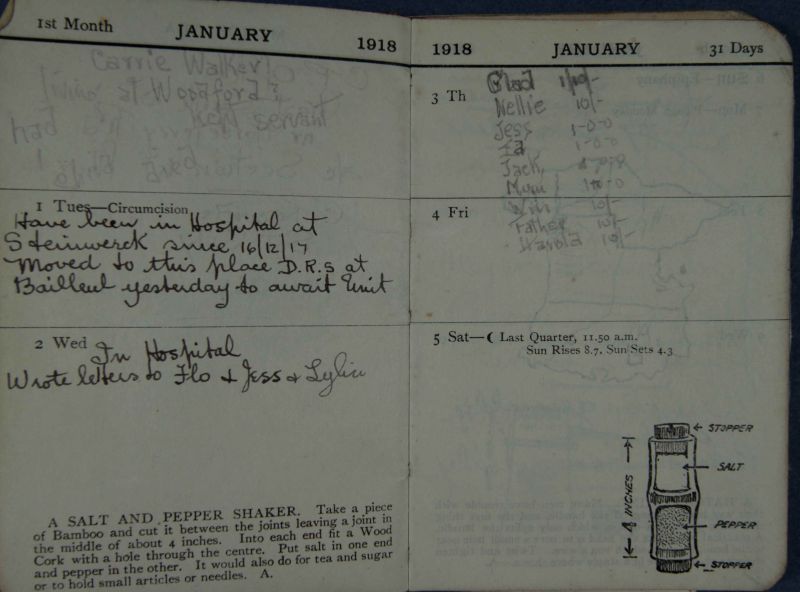 1st Month JANUARY 1918
Carrie Walker
living at Woodford
had Kent servant
1 Tues—Circumcision
Have been in Hospital at
Steinwerck since 16/12/17
Moved to this place D.R.S at
Bailleul yesterday to await Unit
2 Wed In Hospital
Wrote letters to Flo & Jess & Lylie
A SALT AND PEPPER SHAKER. Take a piece
of Bamboo and cut it between the joints leaving a joint in
the middle of about 4 inches. Into each end fit a Wood
Cork with a hole through the centre. Put salt in one end
and pepper in the other. It would also do for tea and sugar
or to hold small articles or needles. A.
1918 JANUARY 31 Days
3 Th
Glad 1/10/-
Nellie 10/-
Jess 1-0-0
Ed 1-0-0
Jack
Mum 1-0-0
4 Fri
Will 10/-
Father 10/-
Harold 10/-
5 Sat—☾ Last Quarter, 11.50 a.m.
Sun Rises 8.7, Sun Sets 4.3
STOPPER
SALT
4 INCHES
PEPPER
STOPPER